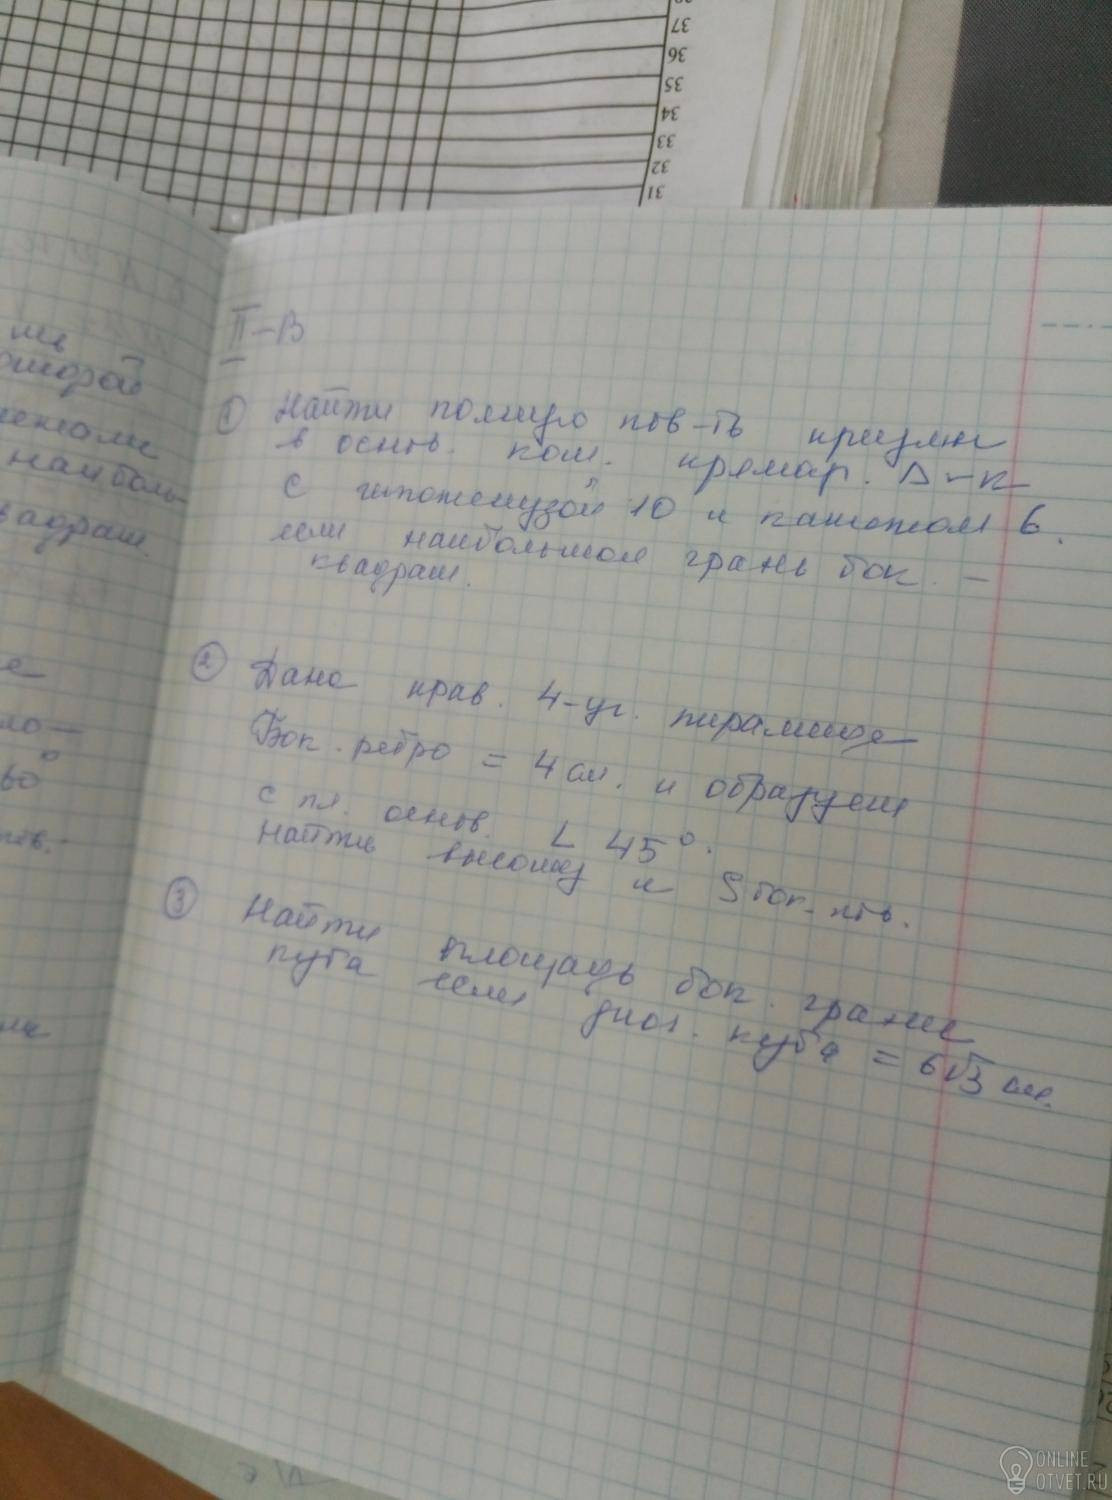 37
36
35
34
33
32
31
II-В
1 Найти полную пов-ть призмы
в основ. кот. прямоуг. Δ-к
с гипотенузой 10 и катетом 6.
если наибольшая грань бок. -
квадрат.
2 Дана прав. 4-уг. пирамида
Бок. ребро = 4 см. и образует
с пл. основ. L 45°.
Найти высоту и S бок. пов.
3 Найти площадь бок. грани
куба если диаг. куба = 6√3 см.
наиболь
квадрат.
ONLINE
OTVET.RU